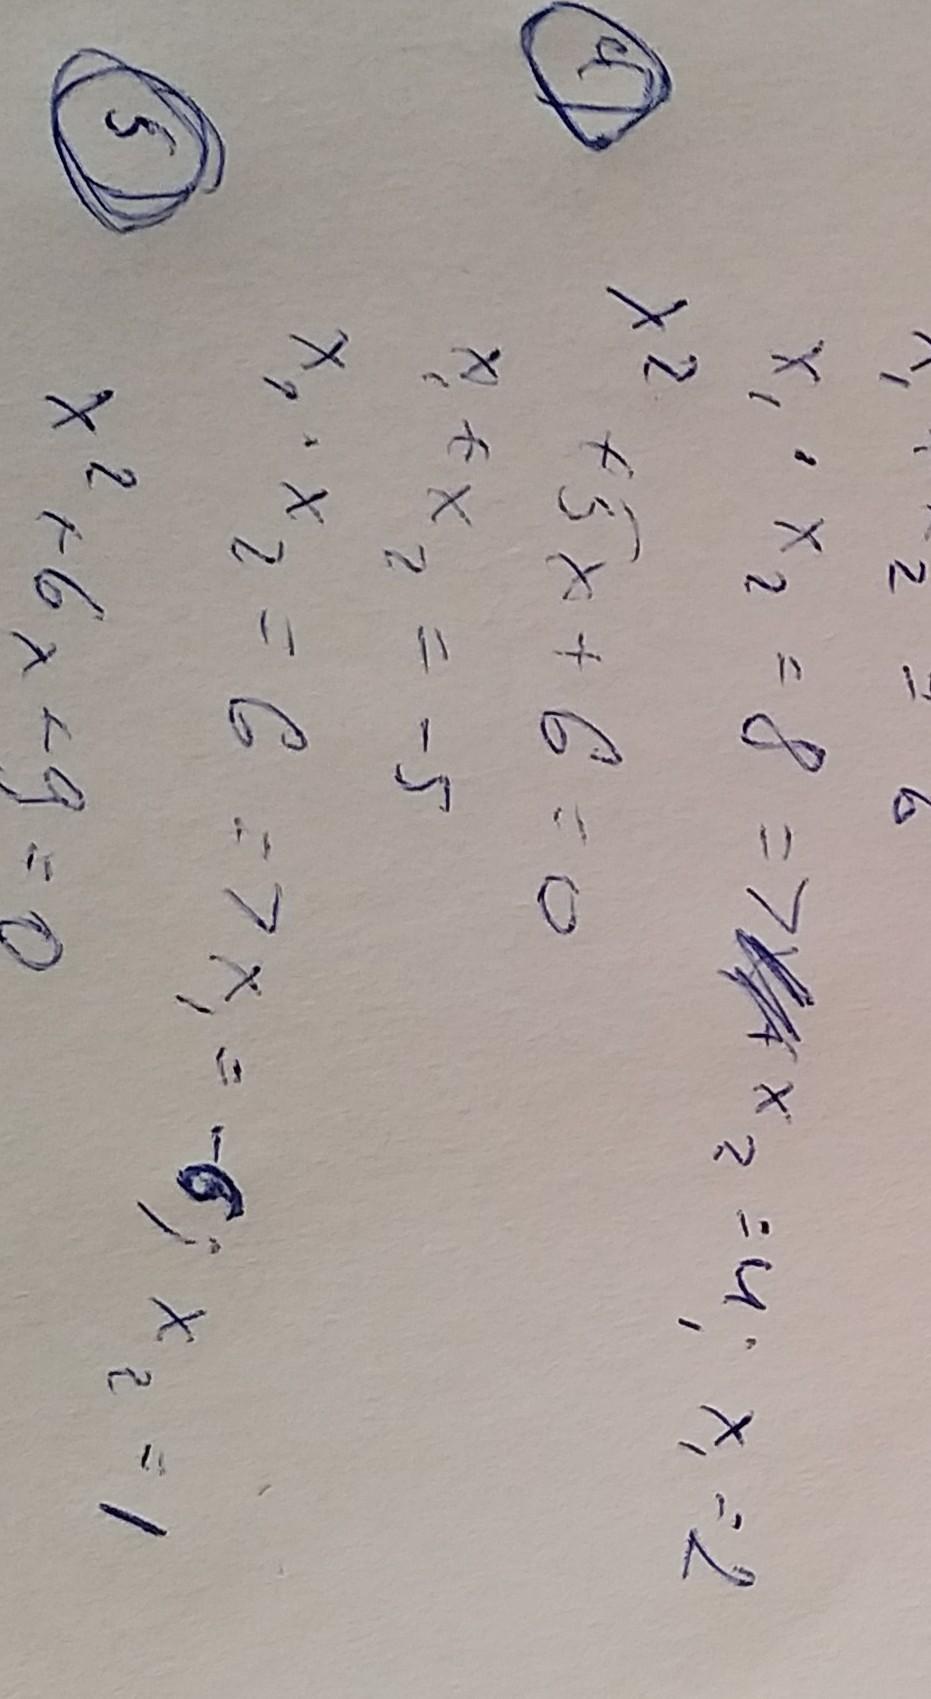 x₁ + x₂ = 6
x₁ · x₂ = 8 => x₂ = 4; x₁ = 2
④ x² + 5x + 6 = 0
x₁ + x₂ = -5
x₁ · x₂ = 6 => x₁ = -6; x₂ = 1
⑤ x² + 6x + 9 = 0